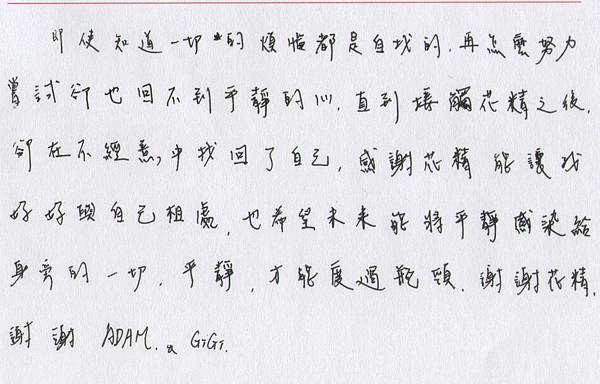 即使知道一切的煩惱都是自找的,再怎麼努力
嘗試卻也回不到平靜的心,直到接觸花精之後,
卻在不經意中找回了自己,感謝花精能讓我
好好與自己相處,也希望未來能將平靜感染給
身旁的一切,平靜,才能度過瓶頸,謝謝花精,
謝謝 ADAM. & GiGi.